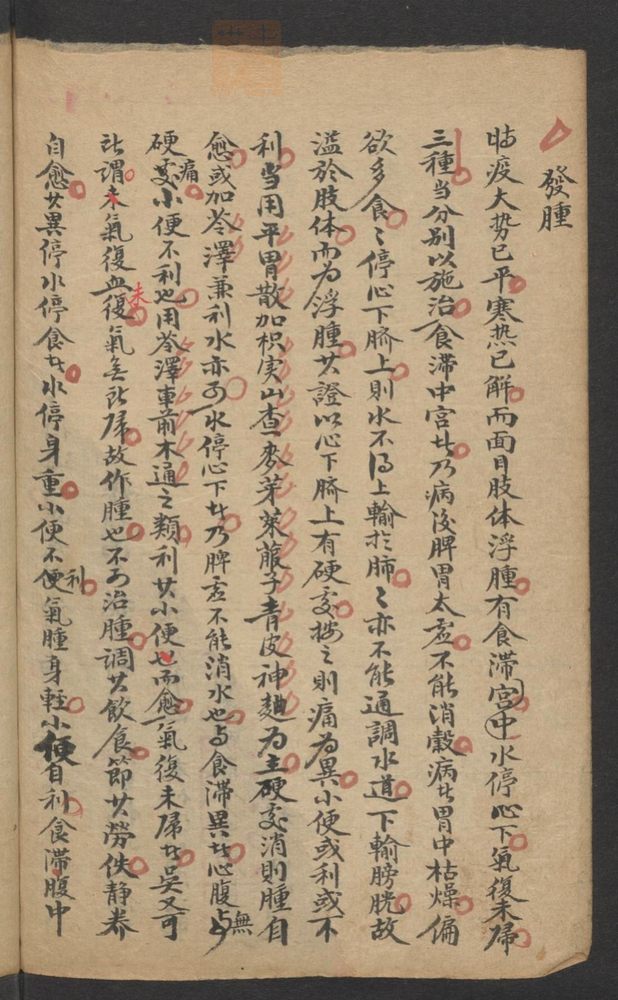 發腫
時疫大势已平寒热已解而面目肢体浮腫有食滯宫中水停心下氣復未歸
三種当分别以施治食滯中宫者乃病後脾胃太虚不能消榖病者胃中枯燥偏
欲多食〻停心下臍上則水不得上輸於肺〻亦不能通調水道下輸膀胱故
溢於肢体而为浮腫其證以心下臍上有硬處按之則痛为異小便或利或不
利当用平胃散加枳实山查麥芽萊菔子青皮神麯为主硬處消則腫自
愈或加苓澤兼利水亦可水停心下者乃脾虚不能消水也与食滯異者心腹無
硬痛處小便不利也用苓澤車前木通之類利其小便而愈氣復未歸者吴又可
所謂氣復血未復氣無所歸故作腫也不可治腫調其飲食節其勞佚静养
自愈其異停水停食者水停身重小便不利氣腫身輕小便自利食滯腹中